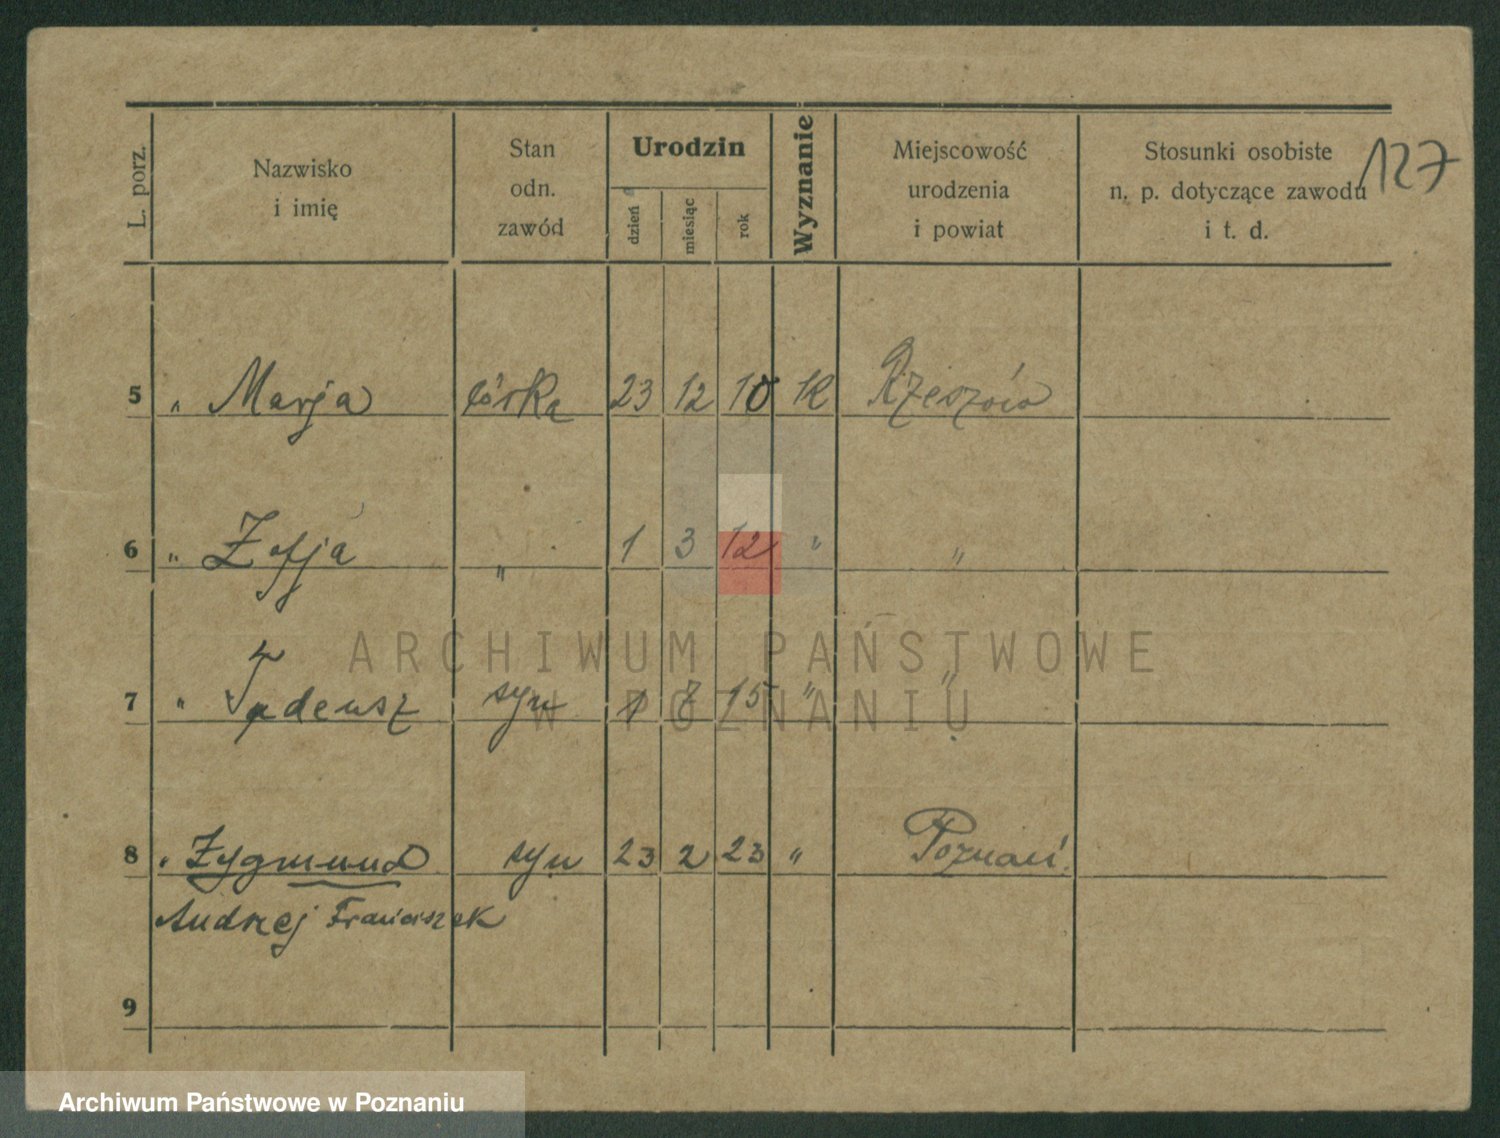 127
L. porz. Nazwisko i imię Stan odn. zawód Urodzin dzień miesiąc rok Wyznanie Miejscowość urodzenia i powiat Stosunki osobiste n. p. dotyczące zawodu i t. d.
5 „ Marja córka 23 12 10 K Rzeszów
6 „ Zofja „ 1 3 12 „ „
ARCHIWUM PAŃSTWOWE
7 „ Tadeusz syn 1 8 15 „ „
W POZNANIU
8 „ Zygmund syn 23 2 23 „ Poznań.
Andrzej Franciszek
9
Archiwum Państwowe w Poznaniu